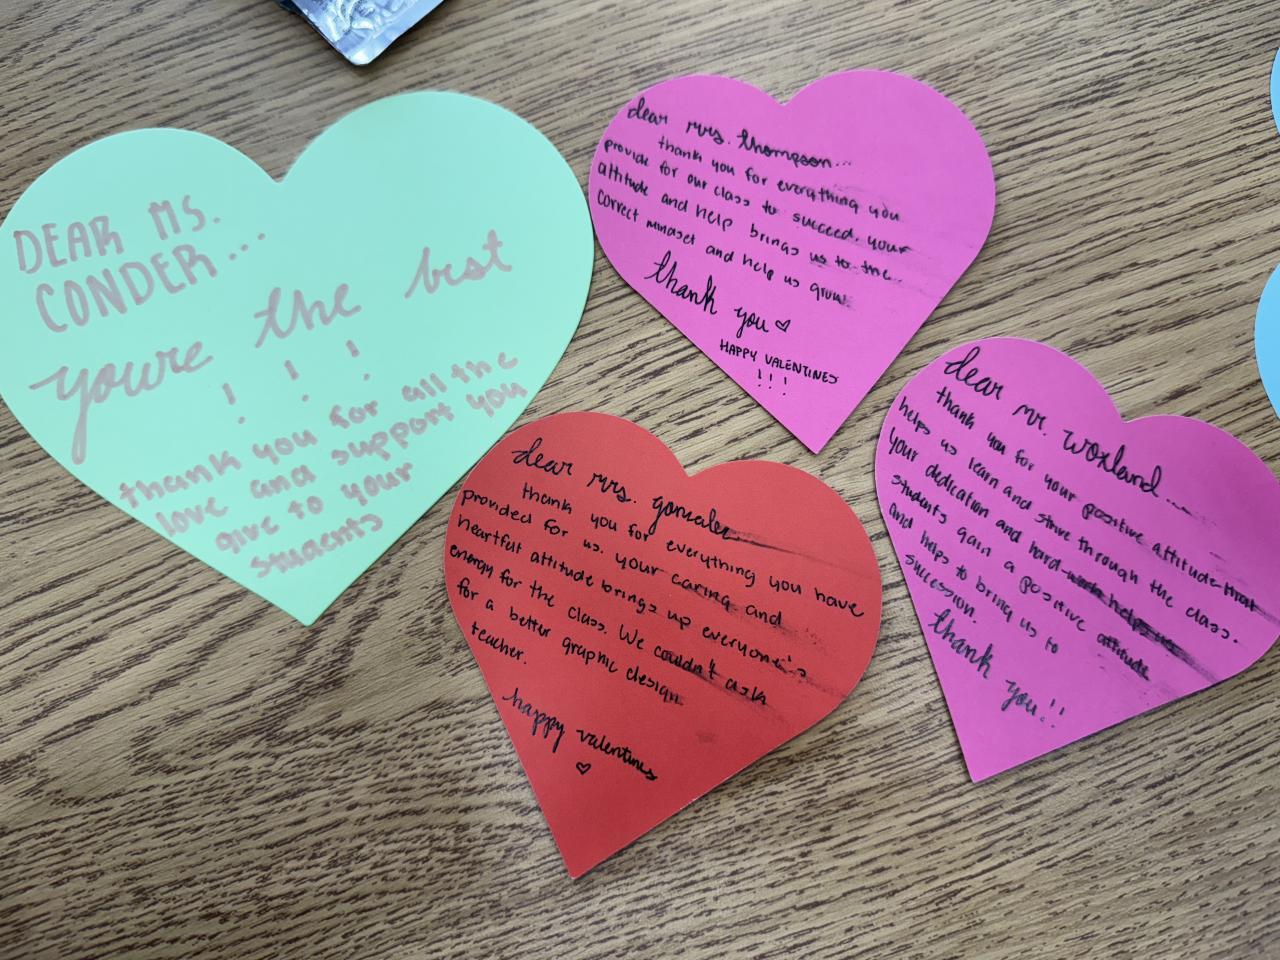 DEAR MS.
CONDER...
you're the best
! ! !
thank you for all the
love and support you
give to your
students
dear mrs. thompson...
thank you for everything you
provide for our class to succeed. your
attitude and help brings us to the
correct mindset and help us grow.
thank you ♡
HAPPY VALENTINES
!!!
dear mrs. gonzales
thank you for everything you have
provided for us. your caring and
heartful attitude brings up everyone's
energy for the class. We couldn't ask
for a better graphic design
teacher.
happy valentines
♡
dear mr. woxland...
thank you for your positive attitude that
helps us learn and strive through the class.
your dedication and hard-work helps us
students gain a positive attitude
and helps to bring us to
succession.
thank you!!